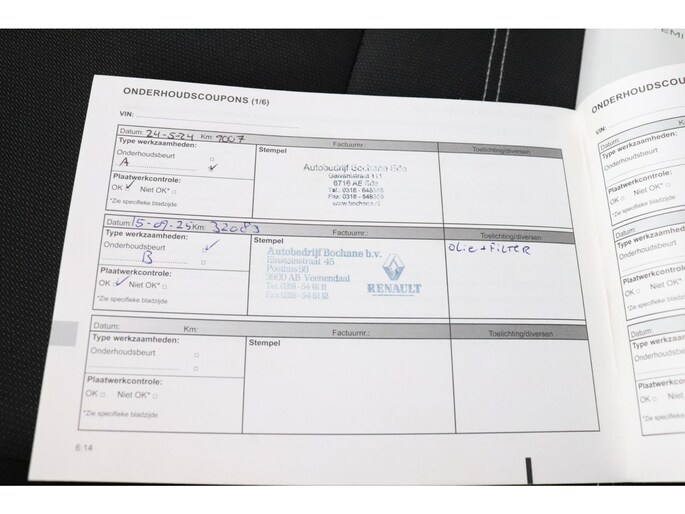 EMI
ONDERHOUDSCOUPONS (1/6)
VIN:
Datum: 24-5-24 Km: 9007 Factuurnr.: Toelichting/diversen
Type werkzaamheden: Stempel
Onderhoudsbeurt
A
Autobedrijf Bochane Ede
Galvanistraat 111
6716 AE Ede
Tel.: 0318 -
Fax: 0318 -
www.bochane.nl
Plaatwerkcontrole:
OK Niet OK*
*Zie specifieke bladzijde
Datum: 15-09-25 Km: 32083 Factuurnr.: Toelichting/diversen
Type werkzaamheden: Stempel
Onderhoudsbeurt
B
Autobedrijf Bochane b.v.
45
Postbus
3900 AB Veenendaal
RENAULT
OLIE + FILTER
Plaatwerkcontrole:
OK Niet OK*
*Zie specifieke bladzijde
Datum: Km: Factuurnr.: Toelichting/diversen
Type werkzaamheden: Stempel
Onderhoudsbeurt
Plaatwerkcontrole:
OK Niet OK*
*Zie specifieke bladzijde
6.14
ONDERHOUDSCOU
VIN:
Datum:
Type werkzaamheden:
Onderhoudsbeurt
Plaatwerkcontrole:
OK Niet OK*
*Zie specifieke bladzijde
Datum:
Type werkzaamhe
Onderhoudsbeurt
Plaatwerkcontrole
OK Niet OK*
*Zie specifieke bladz
Datum:
Type werkzaam
Onderhoudsbeu
Plaatwerkcontr
OK Niet
*Zie specifieke b